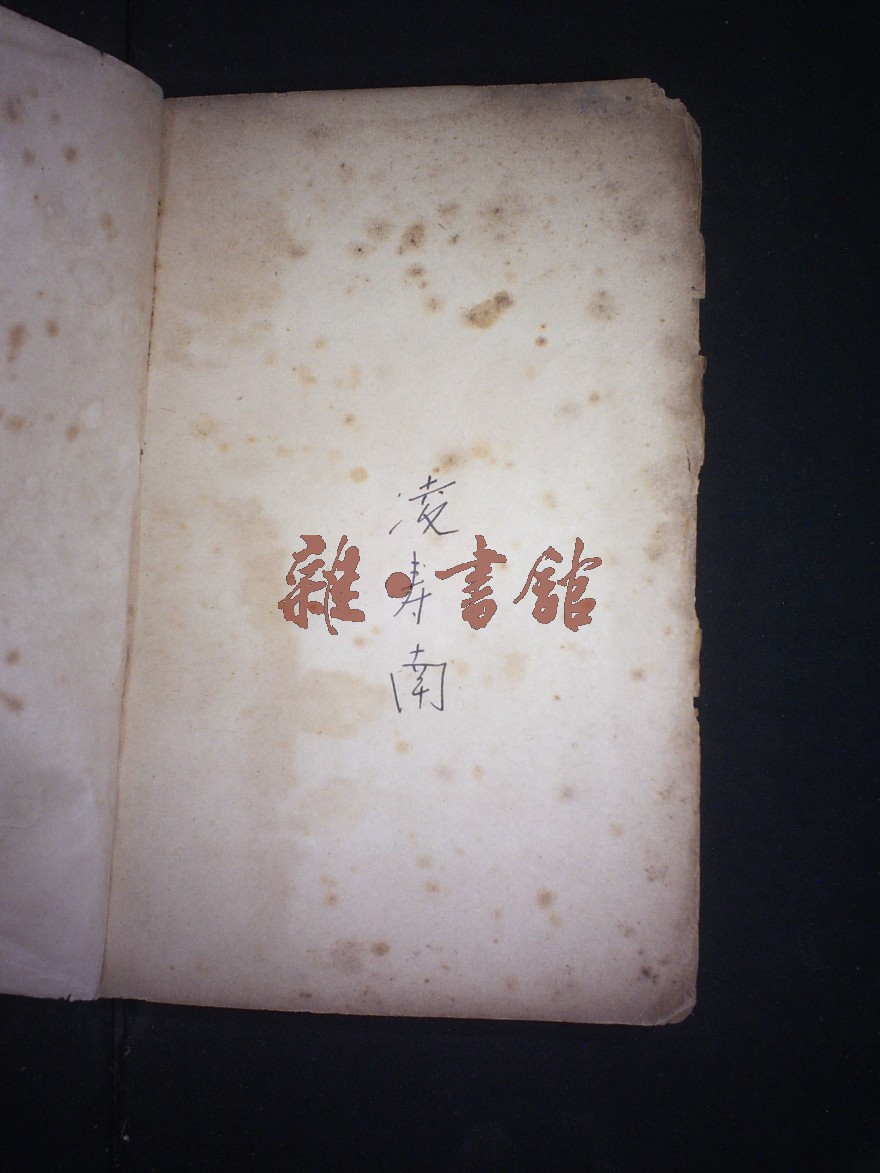 凌寿南
雜·書館